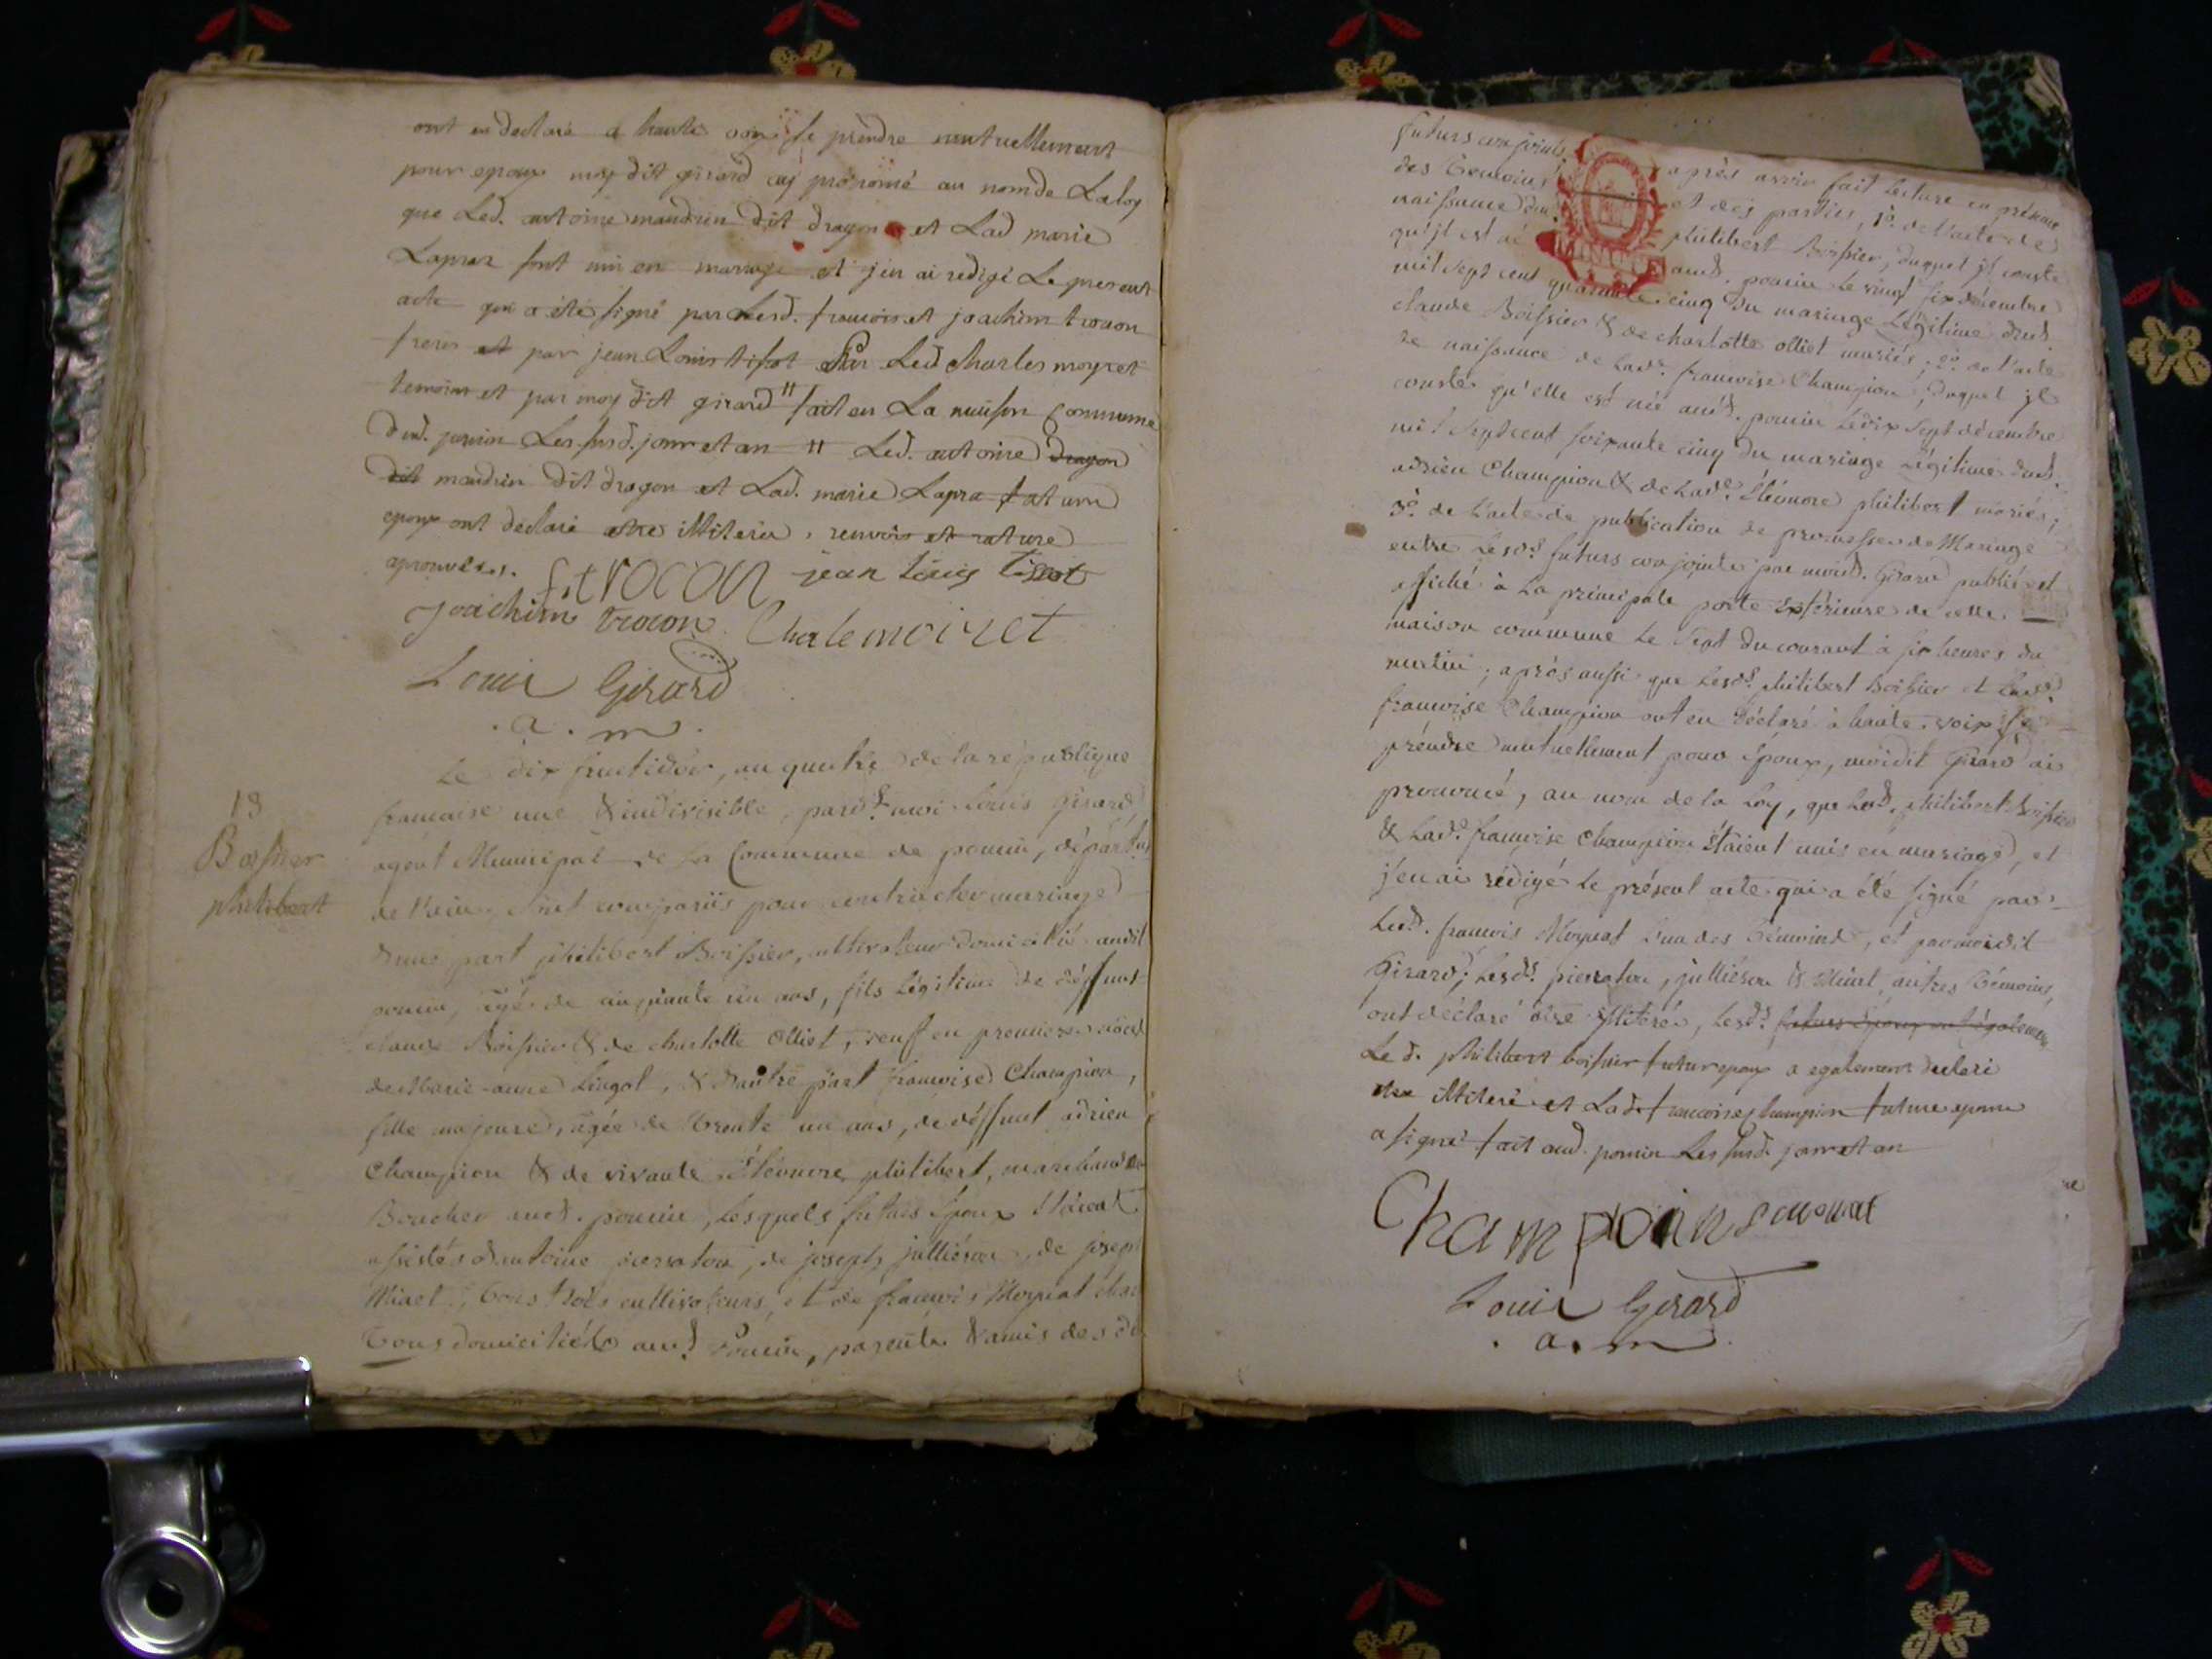 ont en declaré a haute voix se prendre mutuellement
pour epoux moy dit girard ay prononcé au nom de La loy
que Led. antoine mandrin dit dragon et Lad marie
Lapraz sont uni en mariage et j'en ai redigé Le present
acte qui a été signé par Lesd. francois et joachim trocon
freres et par jean Louis tissot Par Led charles moyret
temoins et par moy dit girard " fait en La maison Commune
dud. poncin Les susd. jour et an " Led. antoine dragon
dit mandrin dit dragon et Lad. marie Lapra future
epoux ont declaré etre illiteré, renvois et rature
aprouvées.
f. trocon jean Louis tissot
Joachim trocon Charle moiret
Louis Girard
. a . m .
13
Boissier
philibert
Le dix fructidor, an quatre de la république
francaise une & indivisible, pard.t moi Louis Girard,
agent Municipal de la Commune de poncin, départ.t
de l'ain, Sont comparüs pour contracter mariage
d'une part philibert Boissier, cultivateur domicilié audit
poncin, agé de cinquante un ans, fils légitime de déffunt
claude Boissier & de charlotte Olliet, veuf en premieres noces
de Marie-anne Lingot, & d'autre part francoise Champion,
fille majeure, agée de trente un ans, de déffunt adrien
Champion & de vivante Eléonore philibert, marchand
Boucher aud. poncin, lesquels futurs époux étaient
assistés d'antoine pierraton, de joseph julliéron, de joseph
Minet, tous trois cultivateurs, et de francois Morgnat
tous domiciliés aud. Poncin, parents & amis des d.
futurs conjoints. après avoir fait lecture en présence
des témoins et des parties, 1.o de l'acte de
naissance du philibert Boissier, duquel il conste
qu'il est né aud. poncin le vingt six décembre
mil sept cent quarante cinq du mariage légitime dud.
claude Boissier & de charlotte olliet mariés; 2.o de l'acte
de naissance de lad.e francoise Champion, duquel il
conste qu'elle est née aud. poncin le dix sept décembre
mil sept cent soixante cinq du mariage légitime dud.
adrien Champion & de lad.e Eléonore philibert mariés;
3.o de l'acte de publication de promesses de Mariage
entre lesd.s futurs conjoints par moid. Girard publié et
affiché à la principale porte extérieure de cette
maison commune le sept du courant à six heures du
matin; après aussi que lesd.s philibert Boissier et lad.e
francoise Champion ont eu déclaré à haute voix se
prendre mutuellement pour époux, moidit Girard ai
prononcé, au nom de la Loy, que led. philibert Boissier
& lad.e francoise Champion étaient unis en mariage, et
j'en ai rédigé le présent acte qui a été signé par
led. francois Morgnat l'un des témoins, et par moidit
Girard; lesd.s pierraton, julliéron & Minet, autres témoins,
ont déclaré être illiterés, lesd.s futurs époux ont également
Le d. philibert boissier futur epoux a egalement declaré
etre illiteré et Lade francoise champion future epouse
a signé fait aud. poncin Les susd. jour et an
Champoin
Louis Girard
. a. m .